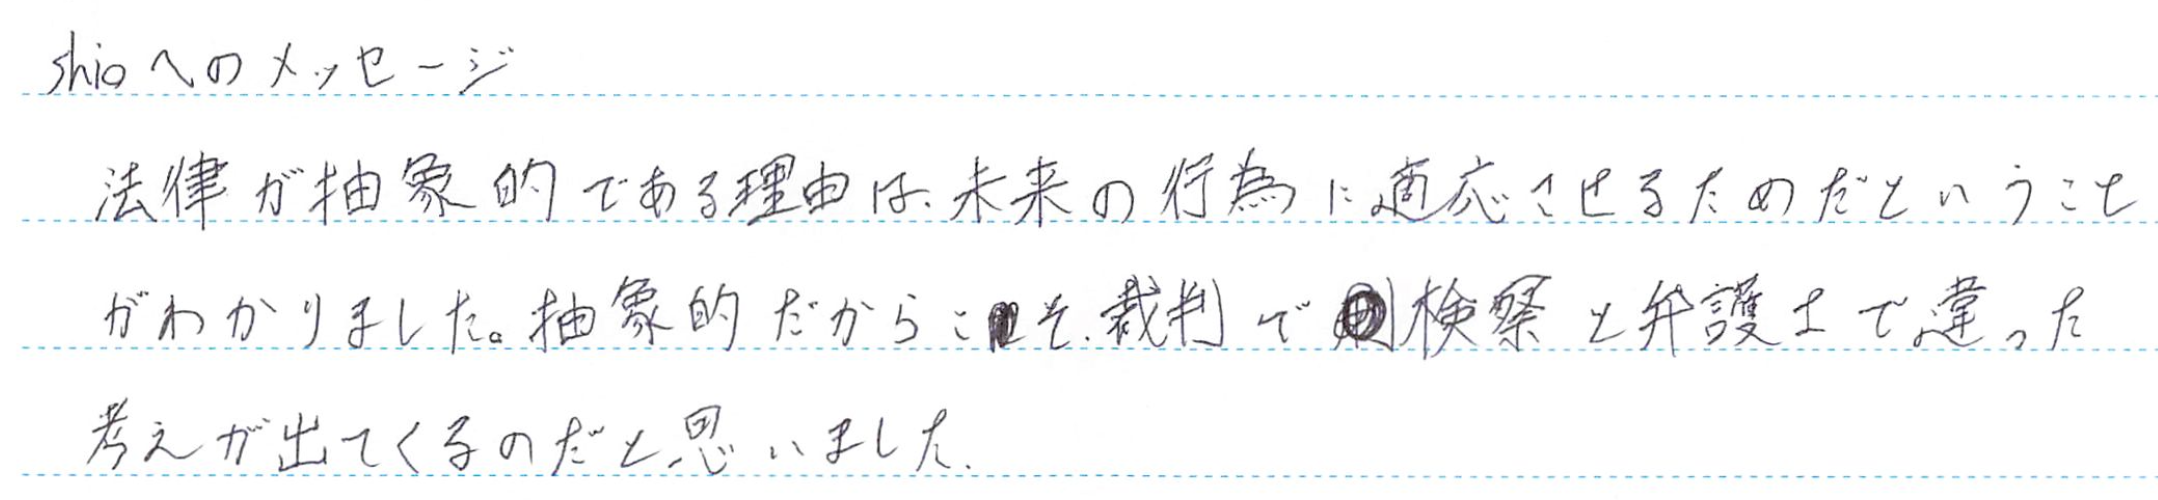 shioへのメッセージ
法律が抽象的である理由は、未来の行為に適応させるためだということ
がわかりました。抽象的だからこそ、裁判で検察と弁護士で違った
考えが出てくるのだと思いました。